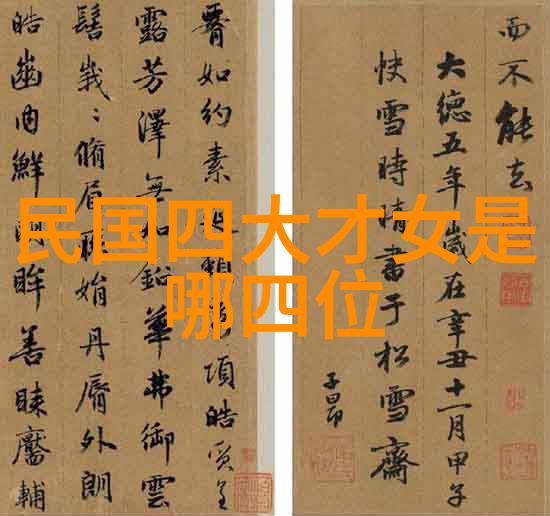 民国四大才女是
哪四位
腰如約素延頸秀項皓質呈
露芳澤無加鉛華弗御雲
髻峩〻脩眉聯娟丹脣外朗
皓齒內鮮明眸善睞靨輔
而不能去
大德五年歲在辛丑十一月甲子
快雪時晴書于松雪齋
子昂